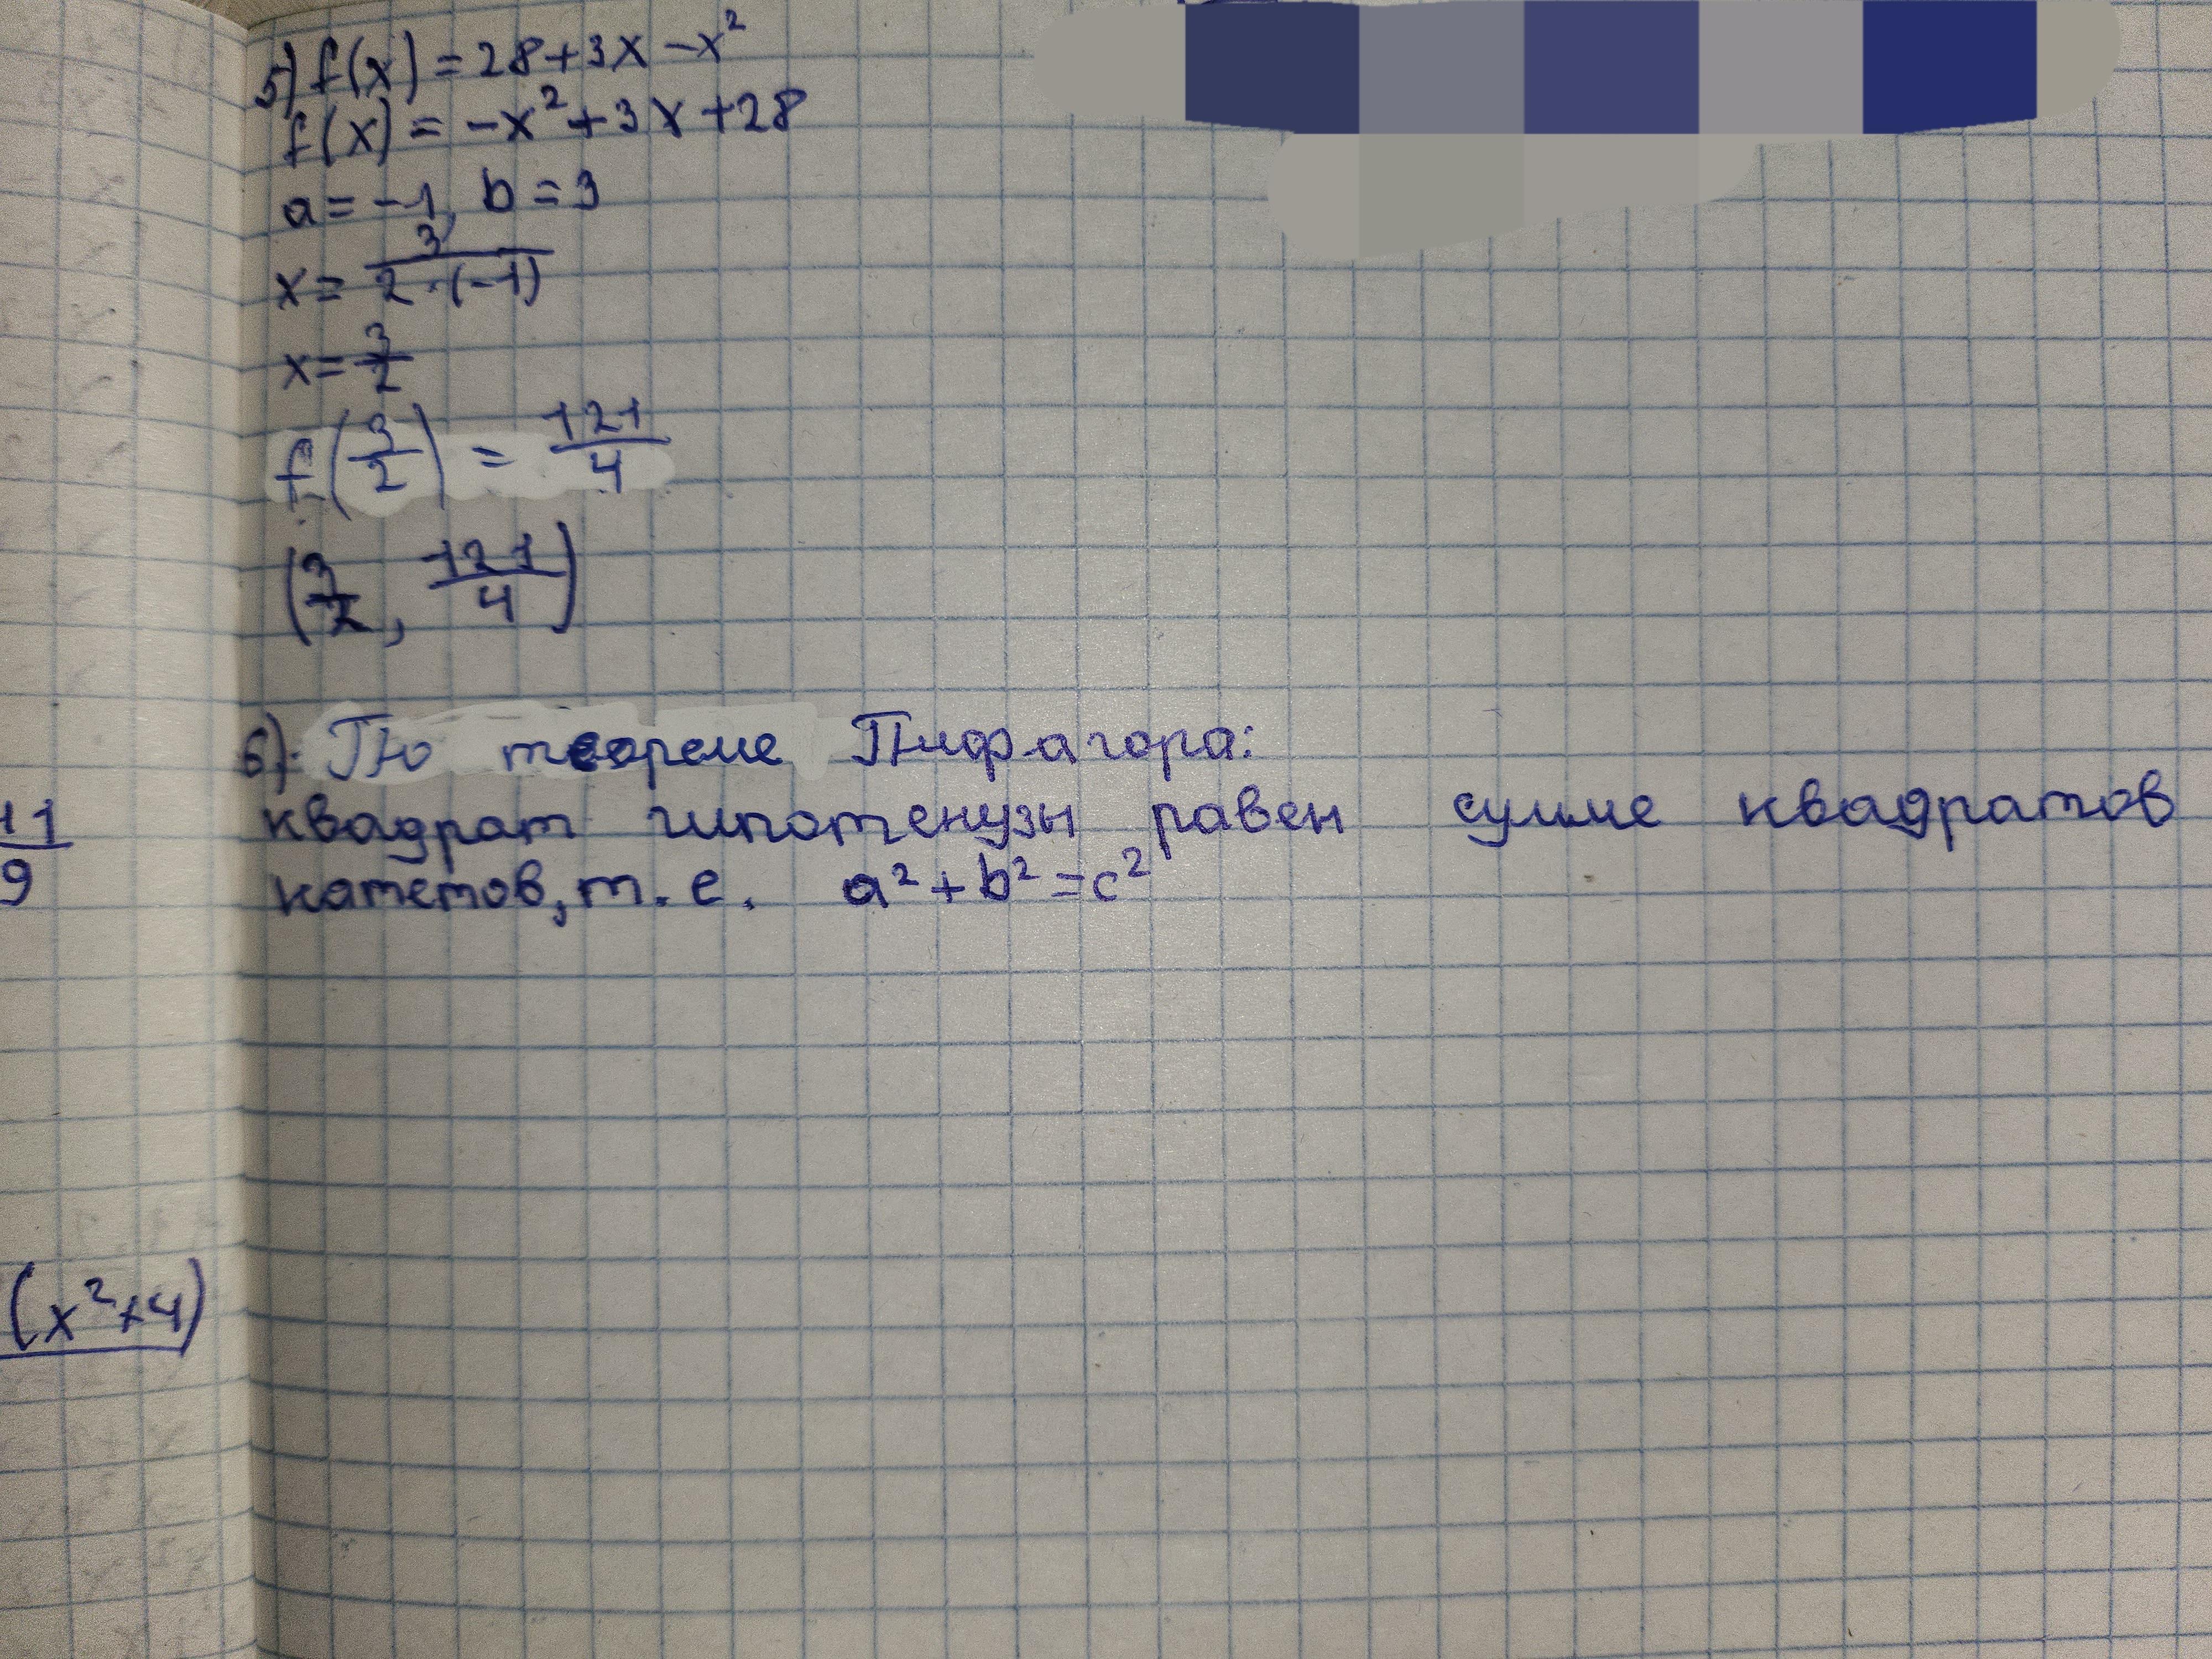 5) f(x) = 28+3x-x²
f(x) = -x²+3x+28
a = -1, b = 3
x = 3/(2·(-1))
x = 3/2
f(3/2) = 121/4
(3/2, 121/4)
6). По теореме Пифагора:
квадрат гипотенузы равен сумме квадратов
катетов, т. е. a²+b²=c²
11/9
(x²+4)